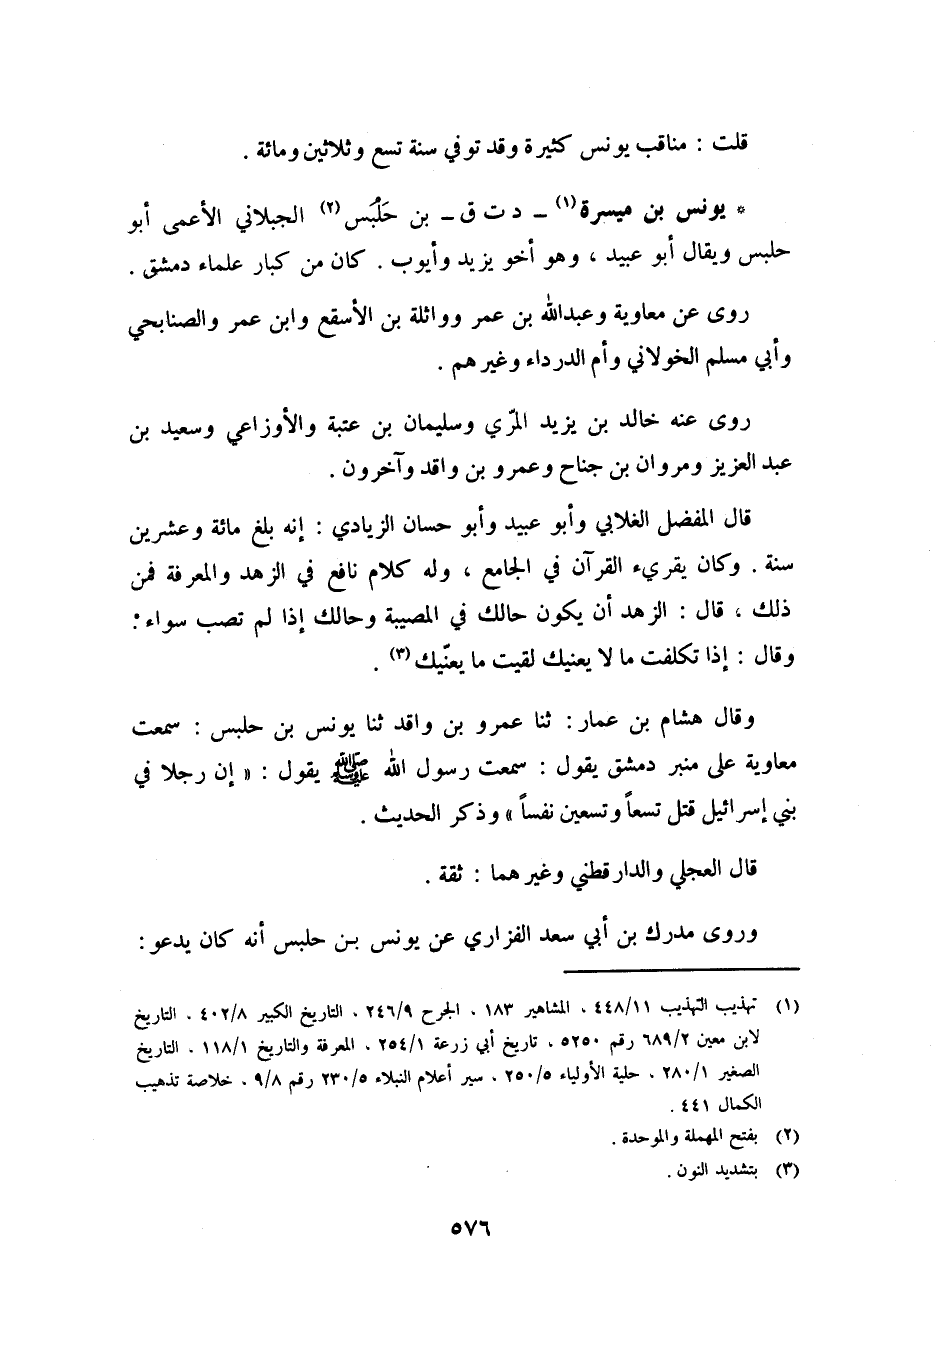 قلت : مناقب يونس كثيرة وقد توفي سنة تسع وثلاثين ومائة .
* يونس بن ميسرة(١) ـ د ت ق ـ بن حَلْبَس(٢) الجبلاني الأعمى أبو
حلبس ويقال أبو عبيد ، وهو أخو يزيد وأيوب . كان من كبار علماء دمشق .
روى عن معاوية وعبدالله بن عمر وواثلة بن الأسقع وابن عمر والصنابحي
وأبي مسلم الخولاني وأم الدرداء وغيرهم .
روى عنه خالد بن يزيد المرّي وسليمان بن عتبة والأوزاعي وسعيد بن
عبد العزيز ومروان بن جناح وعمرو بن واقد وآخرون .
قال المفضل الغلابي وأبو عبيد وأبو حسان الزيادي : إنه بلغ مائة وعشرين
سنة . وكان يقريء القرآن في الجامع ، وله كلام نافع في الزهد والمعرفة فمن
ذلك ، قال : الزهد أن يكون حالك في المصيبة وحالك إذا لم تصب سواء :
وقال : إذا تكلفت ما لا يعنيك لقيت ما يعنّيك(٣) .
وقال هشام بن عمار : ثنا عمرو بن واقد ثنا يونس بن حلبس : سمعت
معاوية على منبر دمشق يقول : سمعت رسول الله ﷺ يقول : « إن رجلا في
بني إسرائيل قتل تسعاً وتسعين نفساً » وذكر الحديث .
قال العجلي والدارقطني وغيرهما : ثقة .
وروى مدرك بن أبي سعد الفزاري عن يونس بن حلبس أنه كان يدعو :
(١) تهذيب التهذيب ٤٤٨/١١ ، المشاهير ١٨٣ ، الجرح ٢٤٦/٩ ، التاريخ الكبير ٤٠٢/٨ ، التاريخ
لابن معين ٦٨٩/٢ رقم ٥٢٥٠ ، تاريخ أبي زرعة ٢٥٤/١ ، المعرفة والتاريخ ١١٨/١ ، التاريخ
الصغير ٢٨٠/١ ، حلية الأولياء ٢٥٠/٥ ، سير أعلام النبلاء ٢٣٠/٥ رقم ٩/٨ ، خلاصة تذهيب
الكمال ٤٤١ .
(٢) بفتح المهملة والموحدة .
(٣) بتشديد النون .
٥٧٦